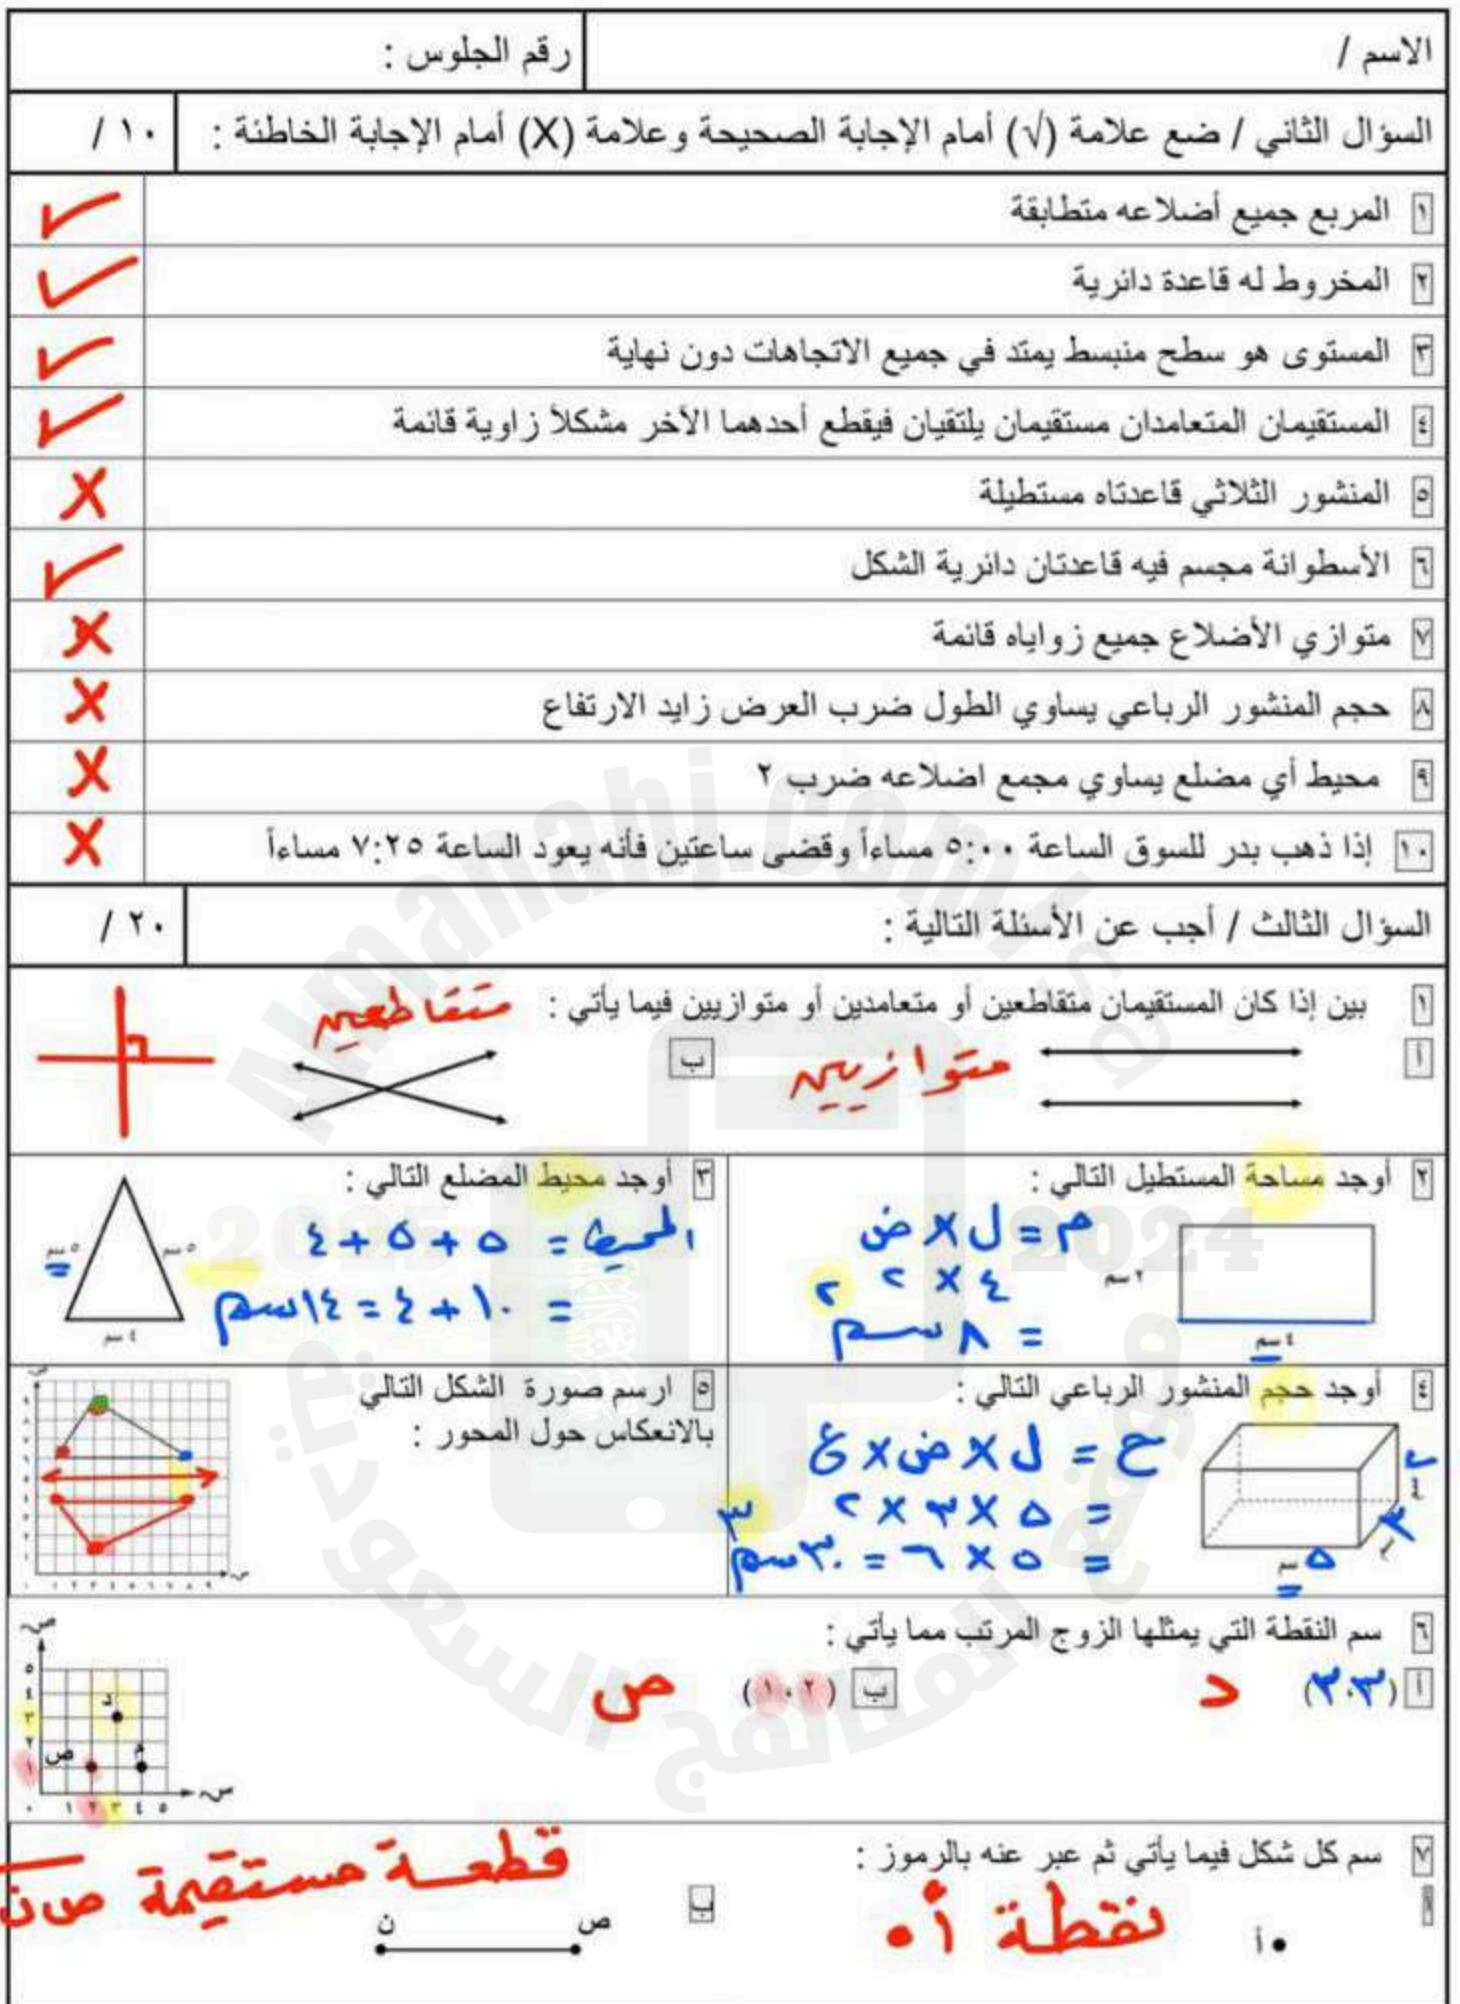 الاسم /
رقم الجلوس :
السؤال الثاني / ضع علامة (√) أمام الإجابة الصحيحة وعلامة (X) أمام الإجابة الخاطئة :
١٠ /
١ المربع جميع أضلاعه متطابقة ✓
٢ المخروط له قاعدة دائرية ✓
٣ المستوى هو سطح منبسط يمتد في جميع الاتجاهات دون نهاية ✓
٤ المستقيمان المتعامدان مستقيمان يلتقيان فيقطع أحدهما الآخر مشكلاً زاوية قائمة ✓
٥ المنشور الثلاثي قاعدتاه مستطيلة X
٦ الأسطوانة مجسم فيه قاعدتان دائرية الشكل ✓
٧ متوازي الأضلاع جميع زواياه قائمة X
٨ حجم المنشور الرباعي يساوي الطول ضرب العرض زايد الارتفاع X
٩ محيط أي مضلع يساوي مجمع اضلاعه ضرب ٢ X
١٠ إذا ذهب بدر للسوق الساعة ٥:٠٠ مساءاً وقضى ساعتين فأنه يعود الساعة ٧:٢٥ مساءاً X
السؤال الثالث / أجب عن الأسئلة التالية :
٢٠ /
١ بين إذا كان المستقيمان متقاطعين أو متعامدين أو متوازيين فيما يأتي :
أ متوازيين
ب متقاطعين
٢ أوجد مساحة المستطيل التالي :
م = ل × ض
٤ × ٢
= ٨ سم٢
٢ سم
٤ سم
٣ أوجد محيط المضلع التالي :
المحيط = ٥ + ٥ + ٤
= ١٠ + ٤ = ١٤ سم
٥ سم
٥ سم
٤ سم
٤ أوجد حجم المنشور الرباعي التالي :
ح = ل × ض × ع
= ٥ × ٣ × ٢
= ٥ × ٦ = ٣٠ سم٣
٢ سم
٣ سم
٥ سم
٥ ارسم صورة الشكل التالي
بالانعكاس حول المحور :
٠ ١ ٢ ٣ ٤ ٥ ٦ ٧ ٨ ٩
٦ سم النقطة التي يمثلها الزوج المرتب مما يأتي :
أ (٣،٣) د
ب (١،٢) ص
ص
٥
٤
٣
٢
١
د
ص
م
س
٠ ١ ٢ ٣ ٤ ٥
٧ سم كل شكل فيما يأتي ثم عبر عنه بالرموز :
أ
نقطة أ
ب قطعة مستقيمة ص ن
ص
ن
Almanahj.com/sa
2024
2025
موقع المناهج السعودية